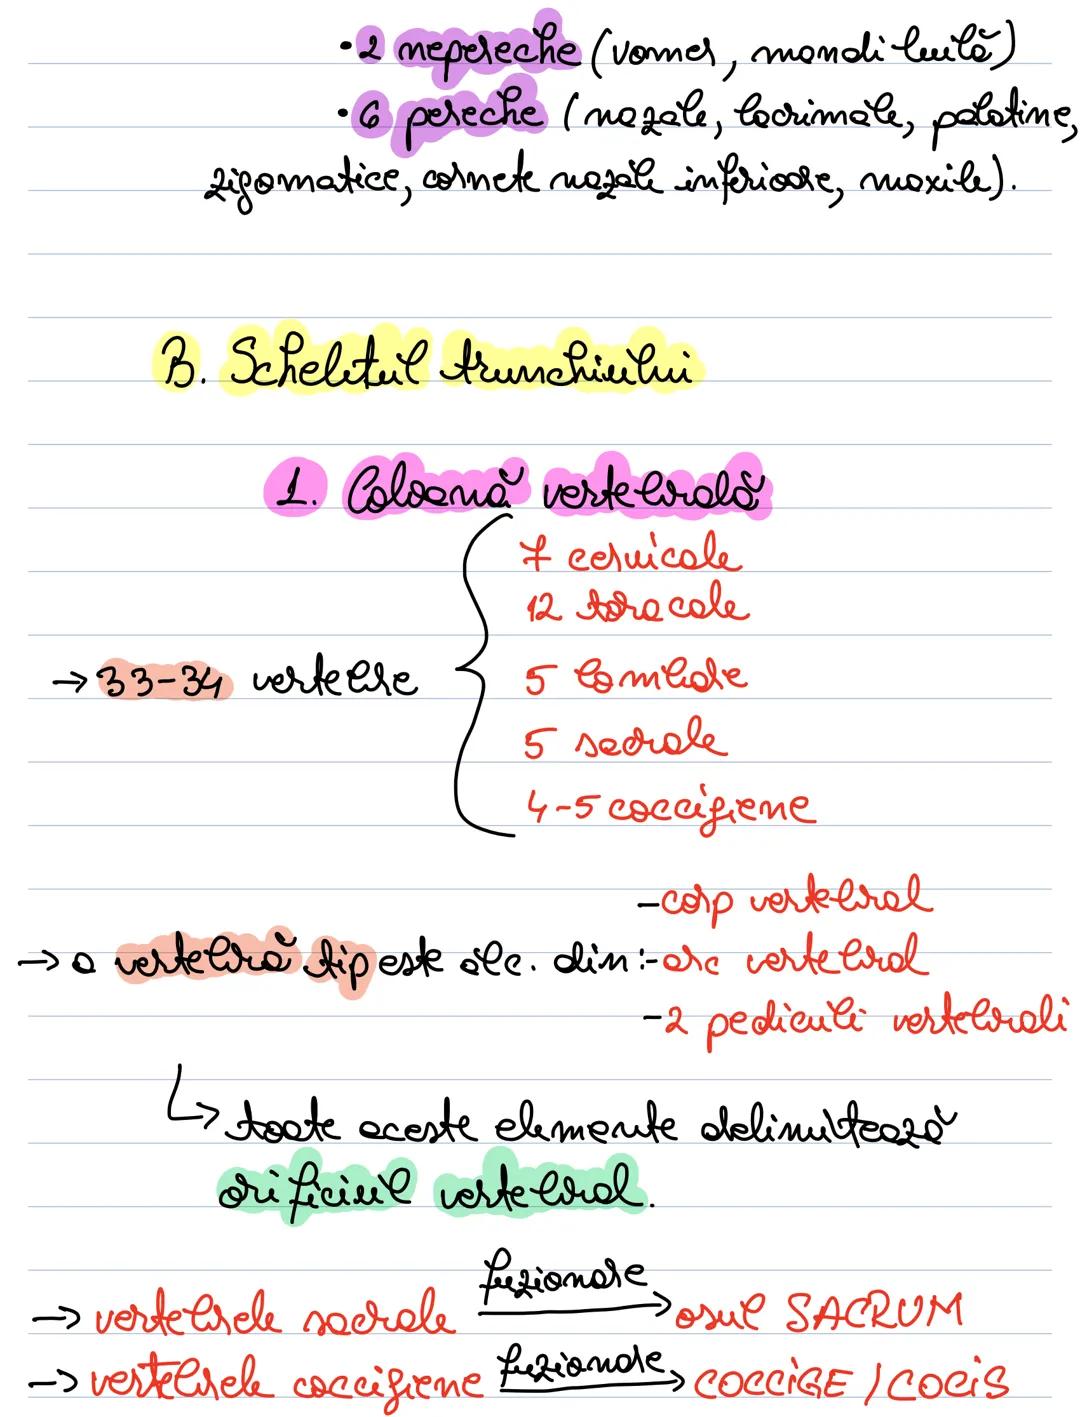 • 2 nepereche (vomer, mandibulă)
• 6 pereche (nazale, lacrimale, palatine,
zigomatice, cornete nazale inferioare, maxile).
B. Scheletul trunchiului
1. Coloană vertebrală
7 cervicale
12 toracale
→ 33-34 vertebre
5 lombare
5 sacrale
4-5 coccigiene
-corp vertebral
→ o vertebră tip este alc. din: -arc vertebral
-2 pediculi vertebrali
↳ toate aceste elemente delimitează
orificiul vertebral.
→ vertebrele sacrale fuzionare → osul SACRUM
→ vertebrele coccigiene fuzionare → COCCIGE / COCIS